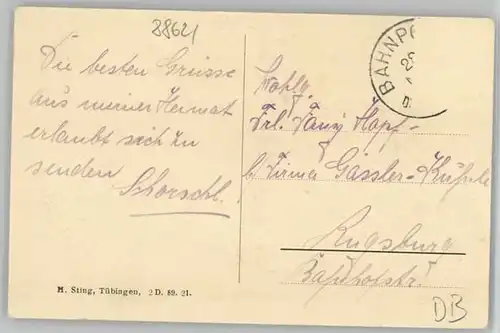 28621
Die besten Grüsse
aus meiner Heimat
erlaubt sich zu
senden
Schorschl.
BAHNP
Wohlg.
Frl. Fany Hopf
b. Firma Gässler-
Augsburg
Bahnhofstr.
M. Sting, Tübingen, 2 D. 89. 21.
DB